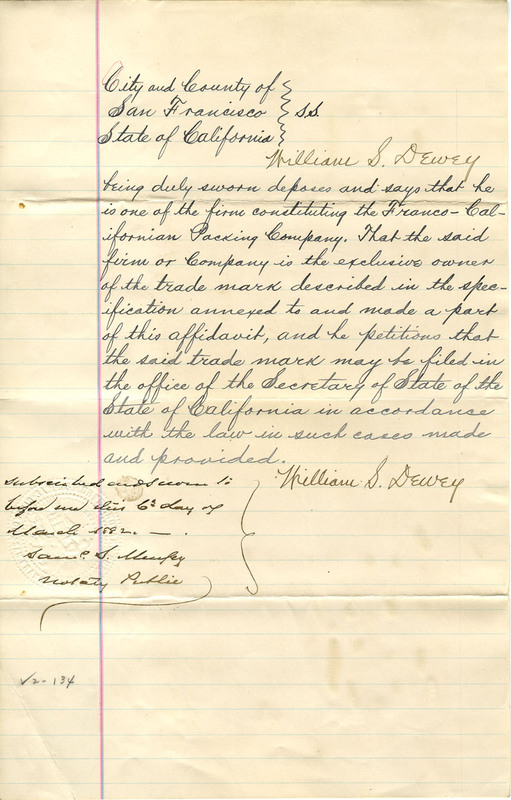 City and County of
San Francisco } S.S.
State of California
William S. Dewey
being duly sworn deposes and says that he
is one of the firm constituting the Franco-Cal-
ifornian Packing Company. That the said
firm or Company is the exclusive owner
of the trade mark described in the spec-
ification annexed to and made a part
of this affidavit, and he petitions that
the said trade mark may be filed in
the office of the Secretary of State of the
State of California in accordance
with the law in such cases made
and provided.
William S. Dewey
Subscribed and sworn to
before me this 6th day of
March 1882. —
Saml. S.
Notary Public
V2-134